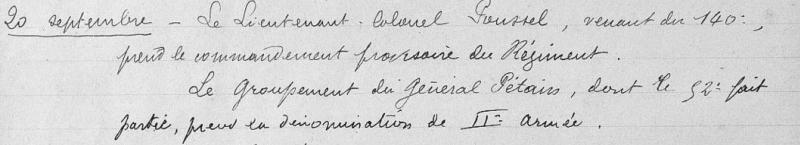 20 septembre - Le Lieutenant-Colonel Poussel, venant du 140e,
prend le commandement provisoire du Régiment.
Le Groupement du Général Pétain, dont le 52e fait
partie, prend la dénomination de IIe Armée.